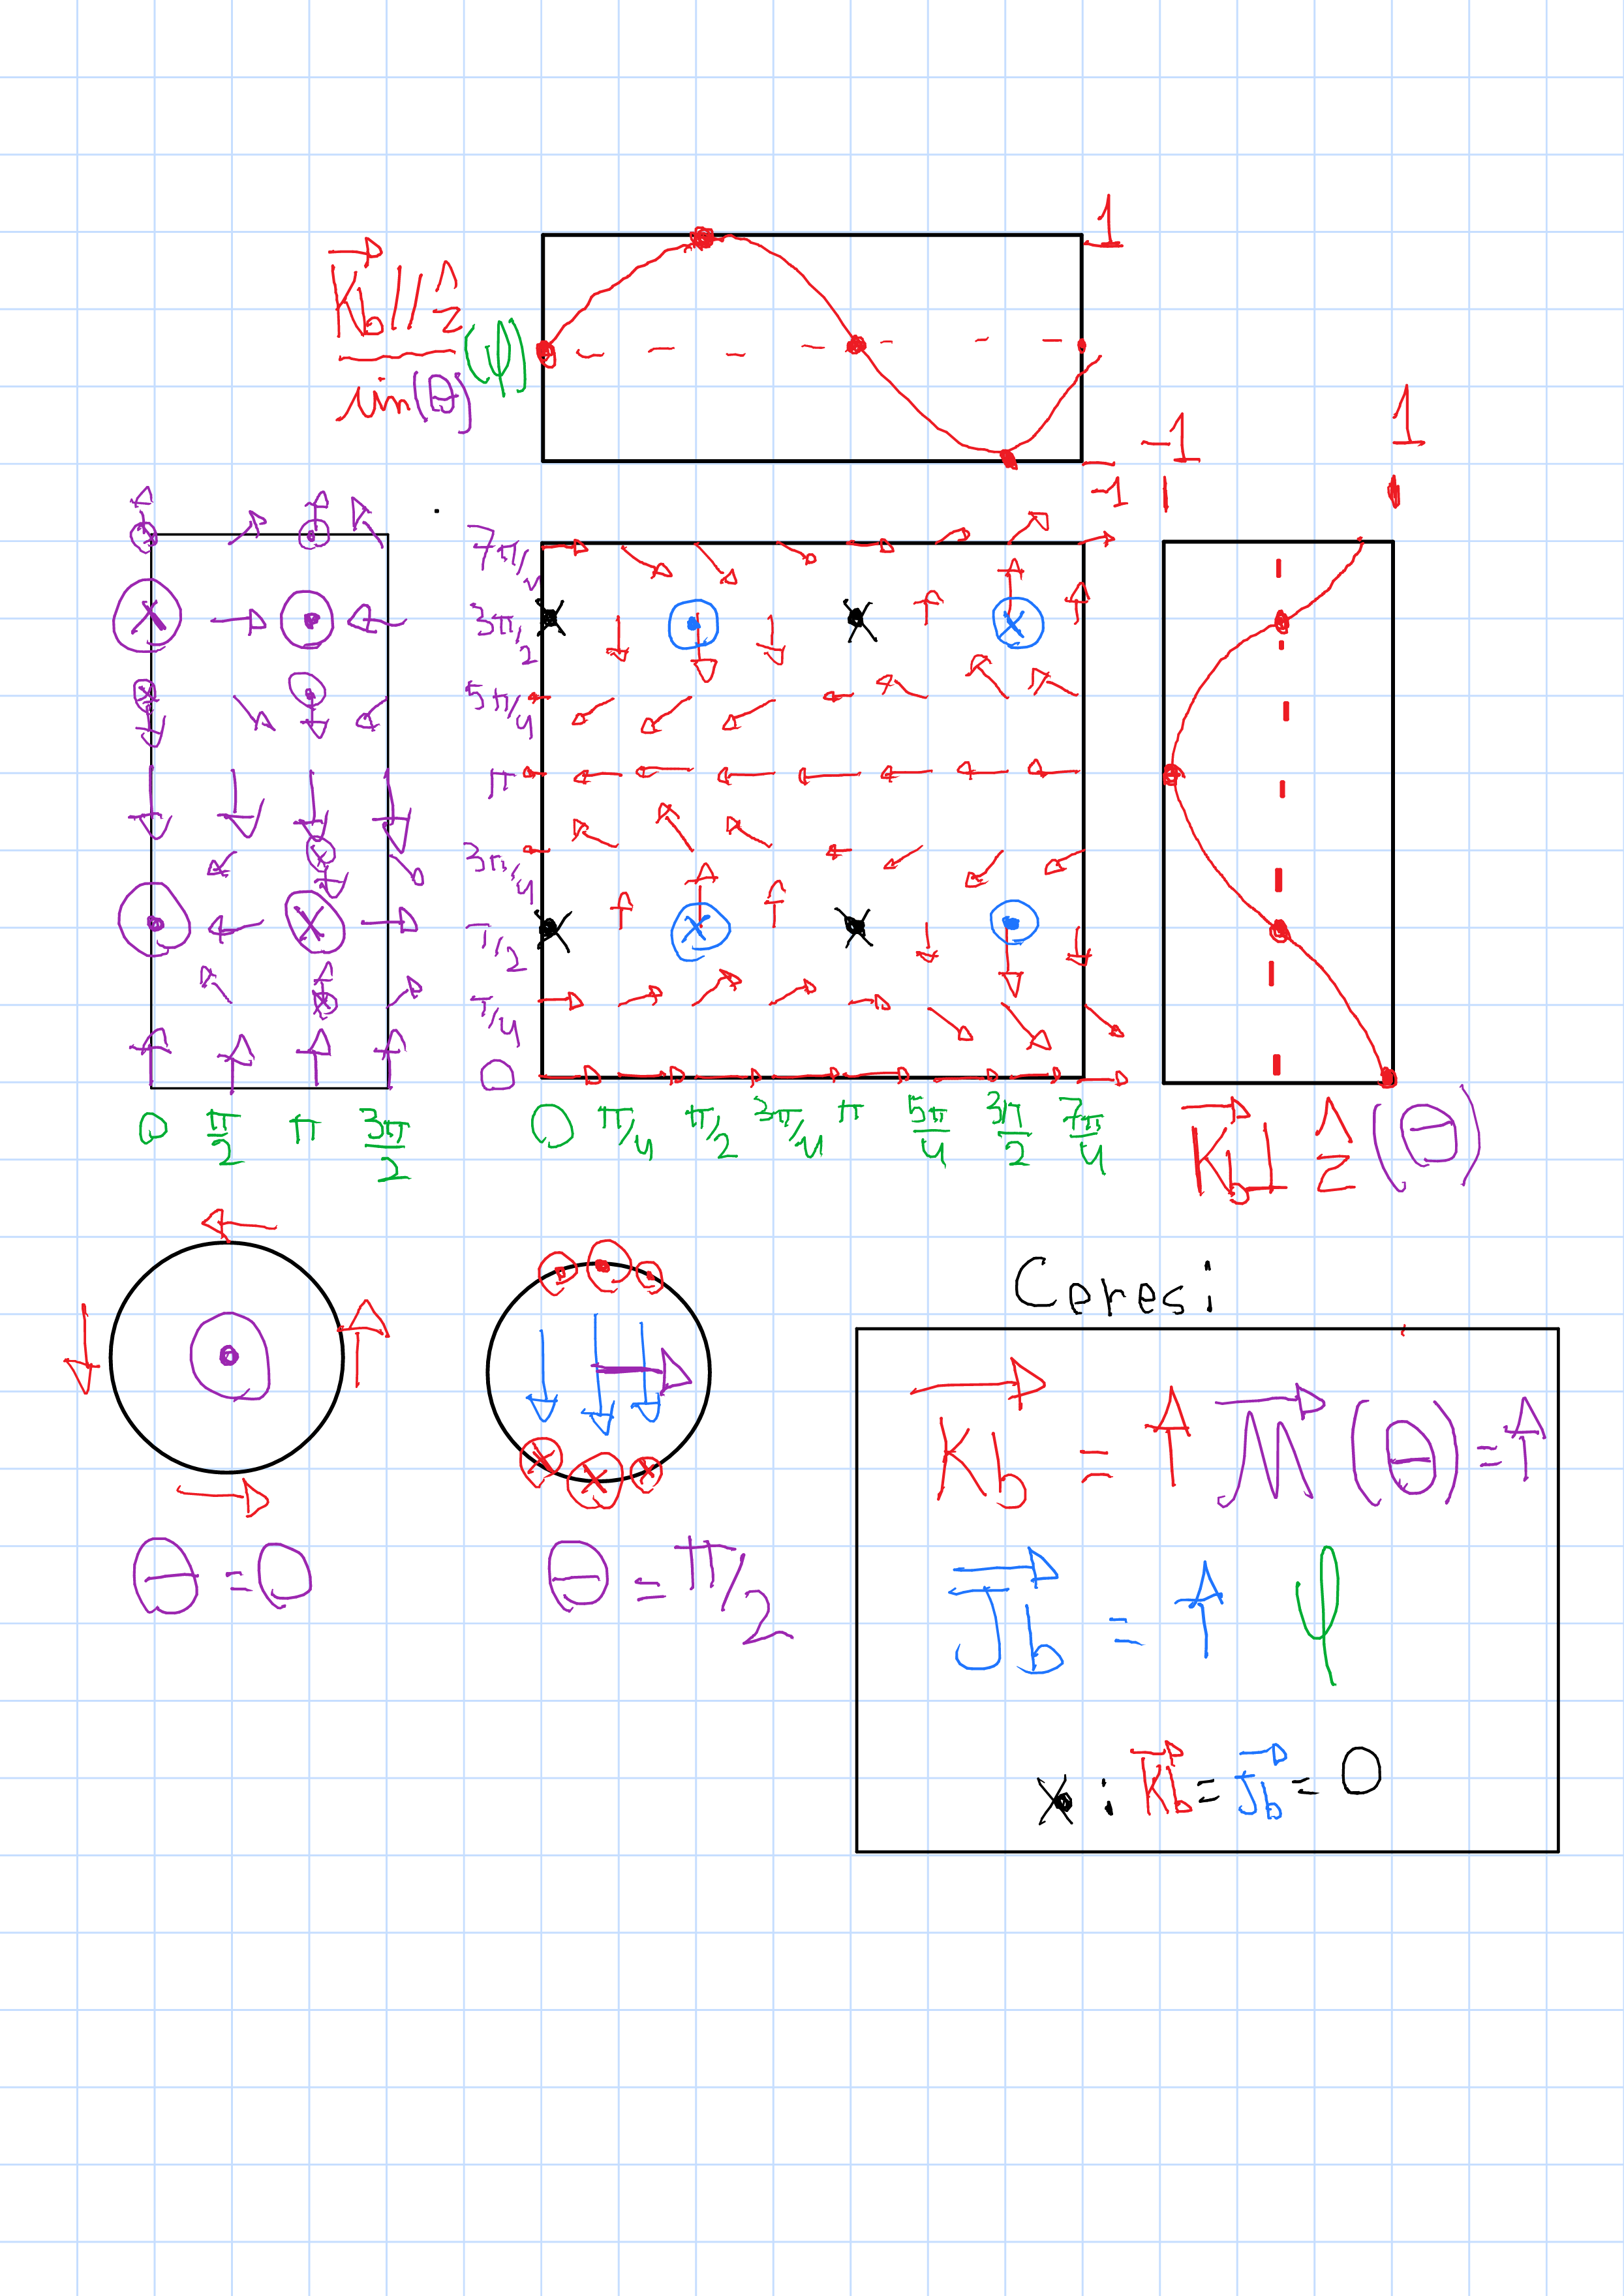 1
K⃗b // ẑ
sin(θ) (φ)
-1
-1 1
7π/4
3π/2
5π/4
π
3π/4
π/2
π/4
0
0 π/2 π 3π/2
0 π/4 π/2 3π/4 π 5π/4 3π/2 7π/4
K⃗b ⊥ ẑ (θ)
θ = 0
θ = π/2
Ceres:
K⃗b = ↑ M⃗ (θ) = ↑
J⃗b = ↑ φ
x : K⃗b = J⃗b = 0